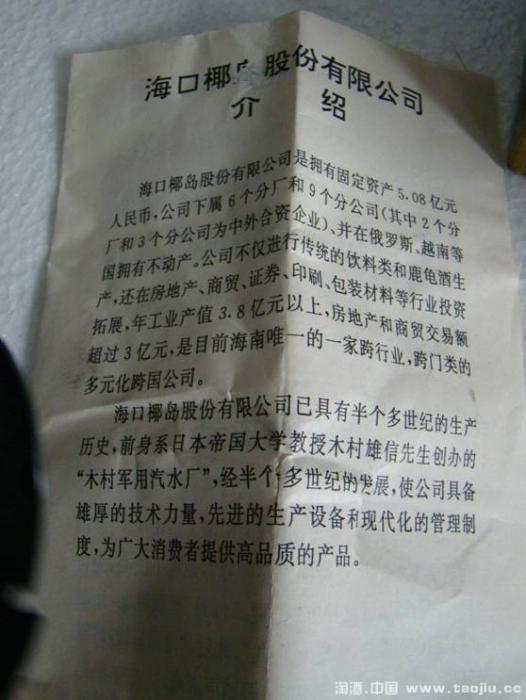 海口椰岛股份有限公司
介 绍
海口椰岛股份有限公司是拥有固定资产5.08亿元
人民币,公司下属6个分厂和9个分公司(其中2个分
厂和3个分公司为中外合资企业)、并在俄罗斯、越南等
国拥有不动产。公司不仅进行传统的饮料类和鹿龟酒生
产,还在房地产、商贸、证券、印刷、包装材料等行业投资
拓展,年工业产值3.8亿元以上,房地产和商贸交易额
超过3亿元,是目前海南唯一的一家跨行业,跨门类的
多元化跨国公司。
海口椰岛股份有限公司已具有半个多世纪的生产
历史,前身系日本帝国大学教授木村雄信先生创办的
“木村军用汽水厂”,经半个多世纪的发展,使公司具备
雄厚的技术力量,先进的生产设备和现代化的管理制
度,为广大消费者提供高品质的产品。
淘酒.中国 www.taojiu.cc